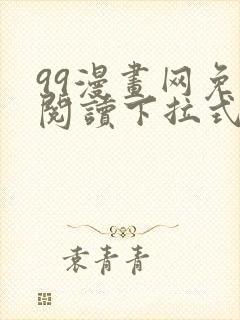 99漫畫网免
閱讀下拉式
袁青青